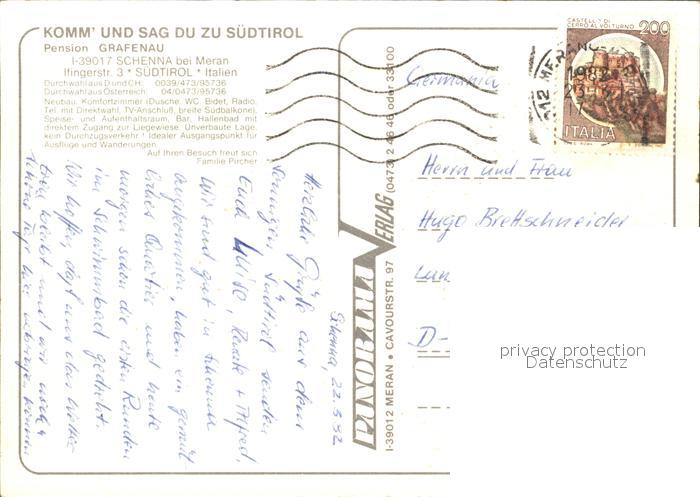 KOMM' UND SAG DU ZU SÜDTIROL
Pension GRAFENAU
I-39017 SCHENNA bei Meran
Ifingerstr. 3 * SÜDTIROL * Italien
Durchwahl aus D und CH: 0039/473/95736
Durchwahl aus Österreich: 04/0473/95736
Neubau, Komfortzimmer (Dusche, WC, Bidet, Radio,
Tel. mit Direktwahl, TV-Anschluß, breite Südbalkone),
Speise- und Aufenthaltsraum, Bar, Hallenbad mit
direktem Zugang zur Liegewiese. Unverbaute Lage,
kein Durchzugsverkehr! Idealer Ausgangspunkt für
Ausflüge und Wanderungen.
Auf Ihren Besuch freut sich
Familie Pircher
Schenna, 22.5.82
Herzliche Grüße aus dem
sonnigen Südtirol senden
Euch Luise, Renate + Alfred.
Wir sind gut in Schenna
angekommen, haben ein gemüt-
liches Quartier und heute
morgen schon die ersten Runden
im Schwimmbad gedreht.
Wir hoffen, daß uns das Wetter
treu bleibt und wir noch
schöne Tage hier verbringen können
PANORAMA VERLAG (0473) 2 46 46 oder 33 1 00
I-39012 MERAN • CAVOURSTR. 97
CASTELLO DI
CERRO AL VOLTURNO
200
ITALIA
MERANO
1982
Germania
Herrn und Frau
Hugo Brettschneider
D-
privacy protection
Datenschutz